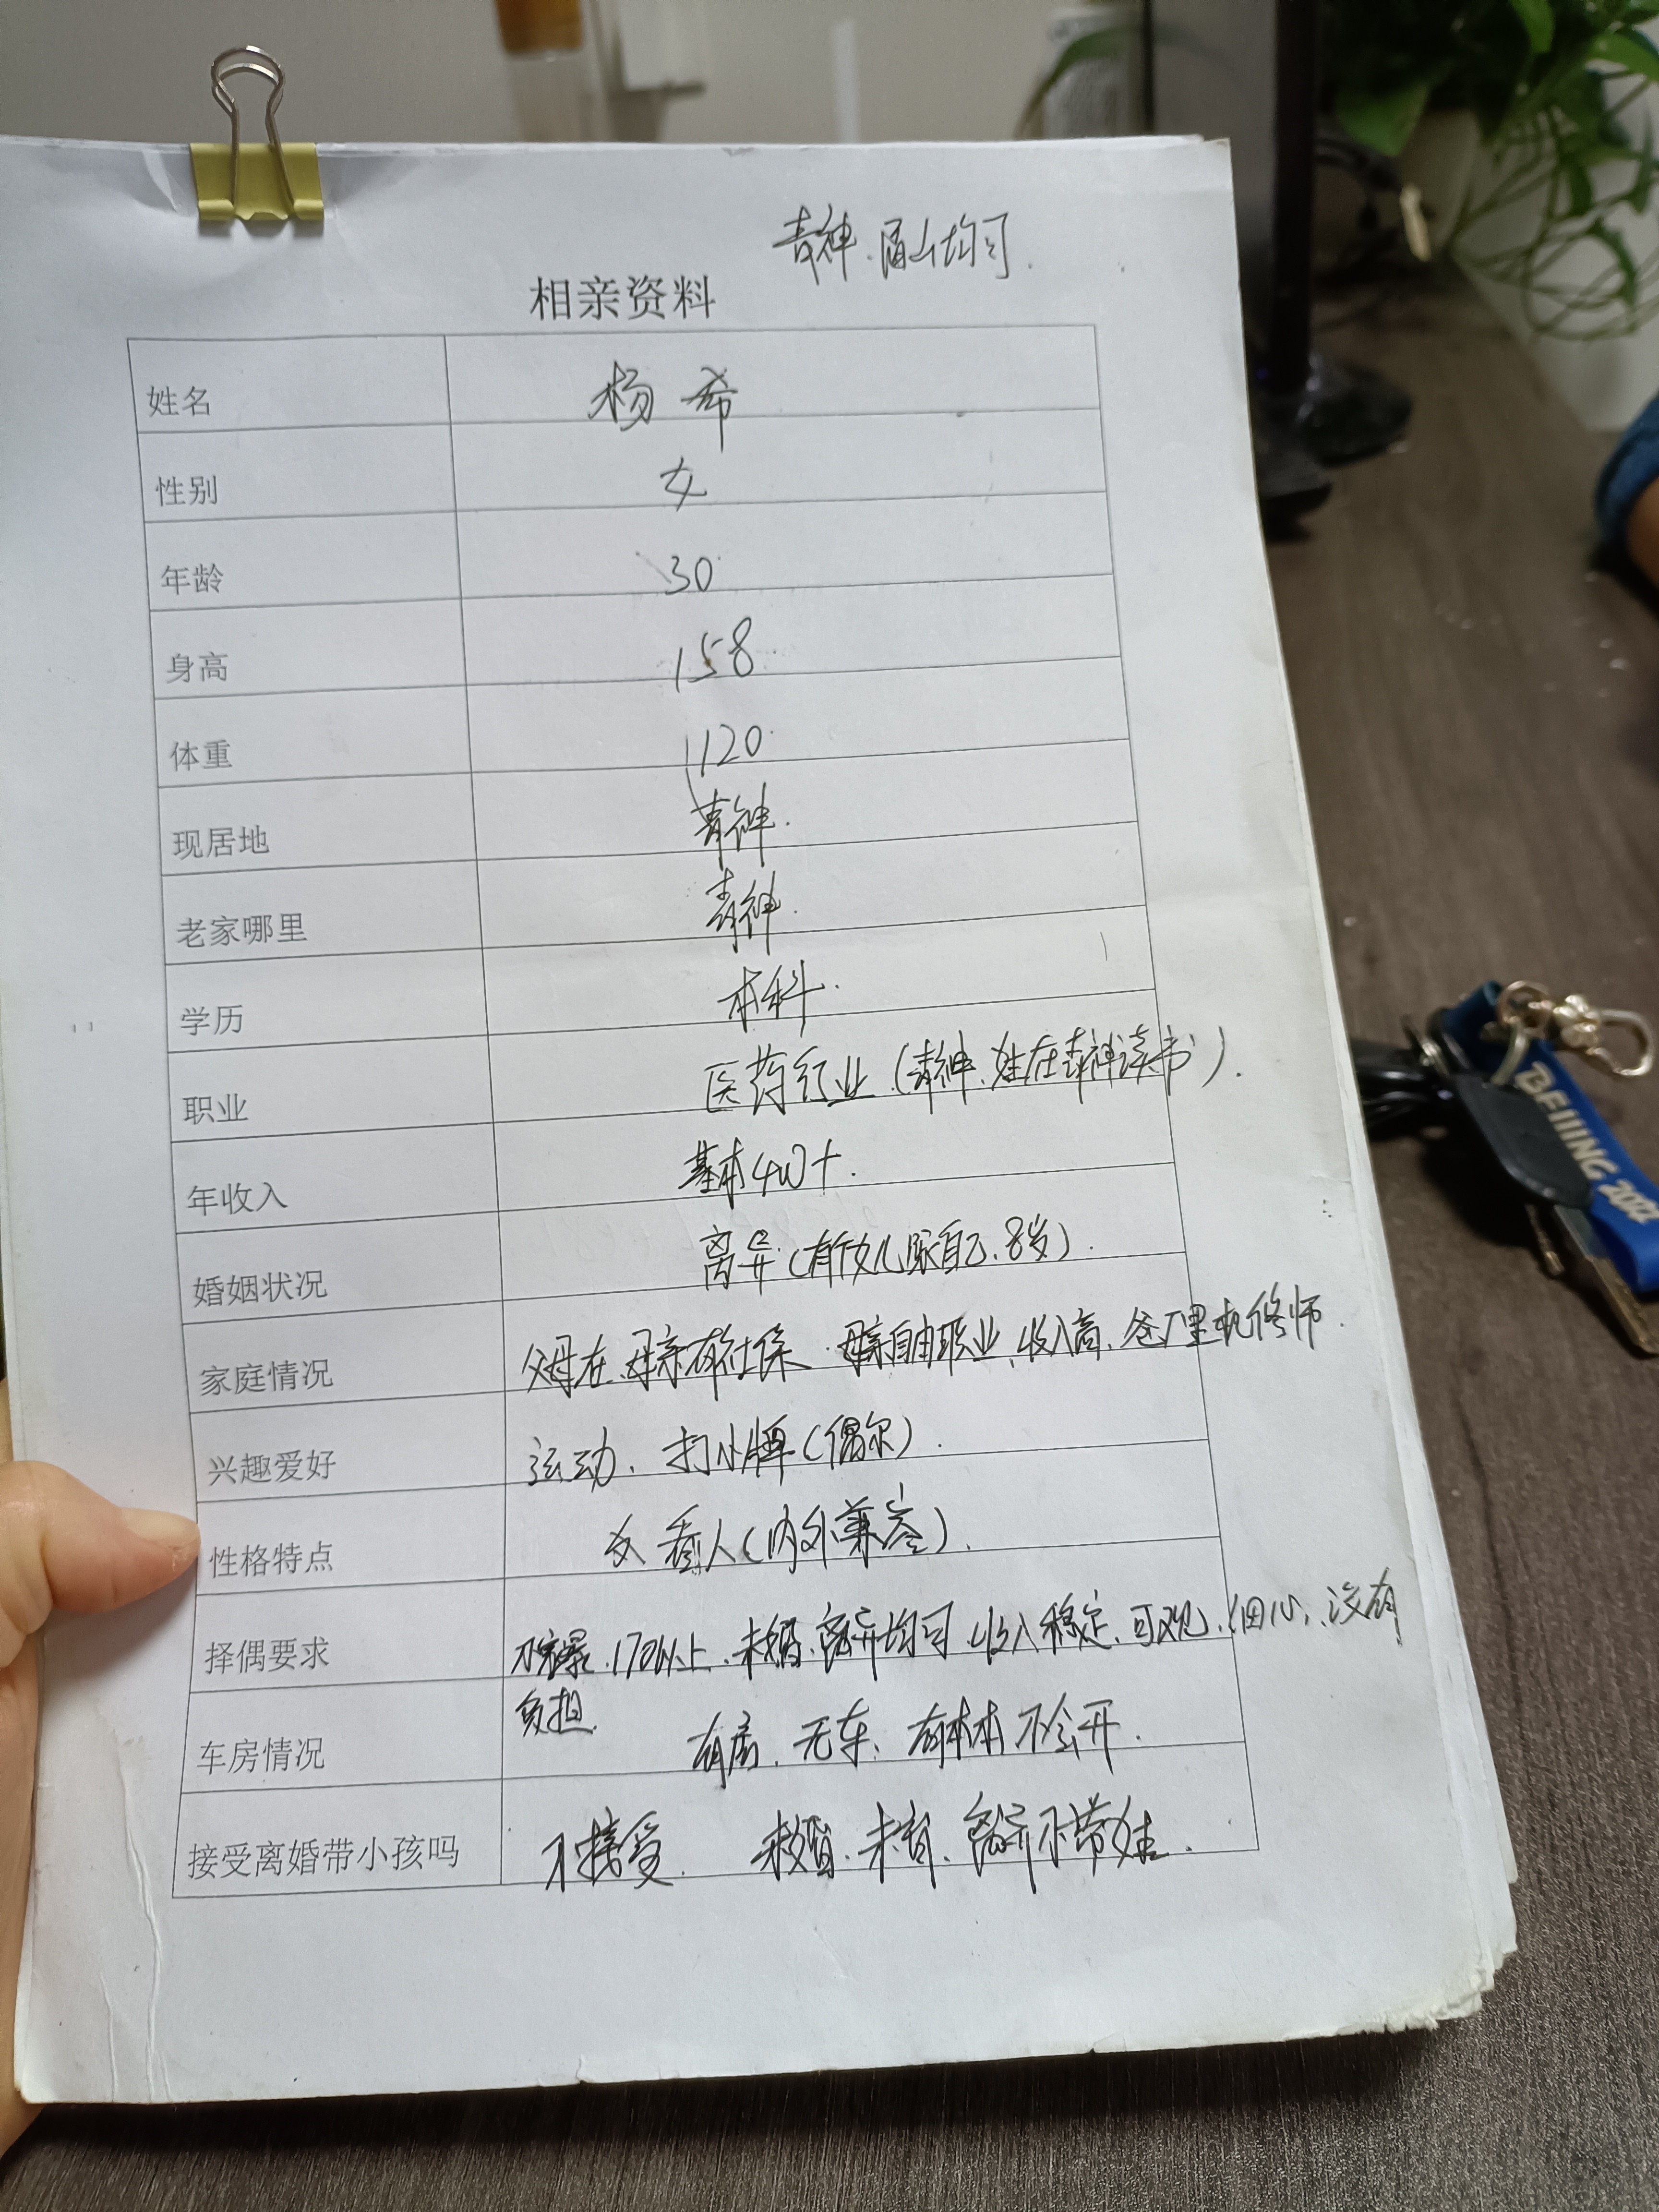 青神.眉山均可.
相亲资料
姓名 杨希
性别 女
年龄 30
身高 158
体重 120
现居地 青神.
老家哪里 青神.
学历 本科.
职业 医药行业.(青神、娃在青神读书).
年收入 基本4W+.
婚姻状况 离异(有个女儿跟自己.8岁).
家庭情况 父母在、母亲有社保.母亲自由职业、收入高、爸厂里机修师.
兴趣爱好 运动、打小牌(偶尔).
性格特点 看人(内外兼).
择偶要求 170以上.未婚.离异均可.收入稳定.可观.细心、没有
负担.
车房情况 有房、无车、有本本不公开.
接受离婚带小孩吗 不接受. 未婚.未育.离异不带娃.
BEIJING 2022